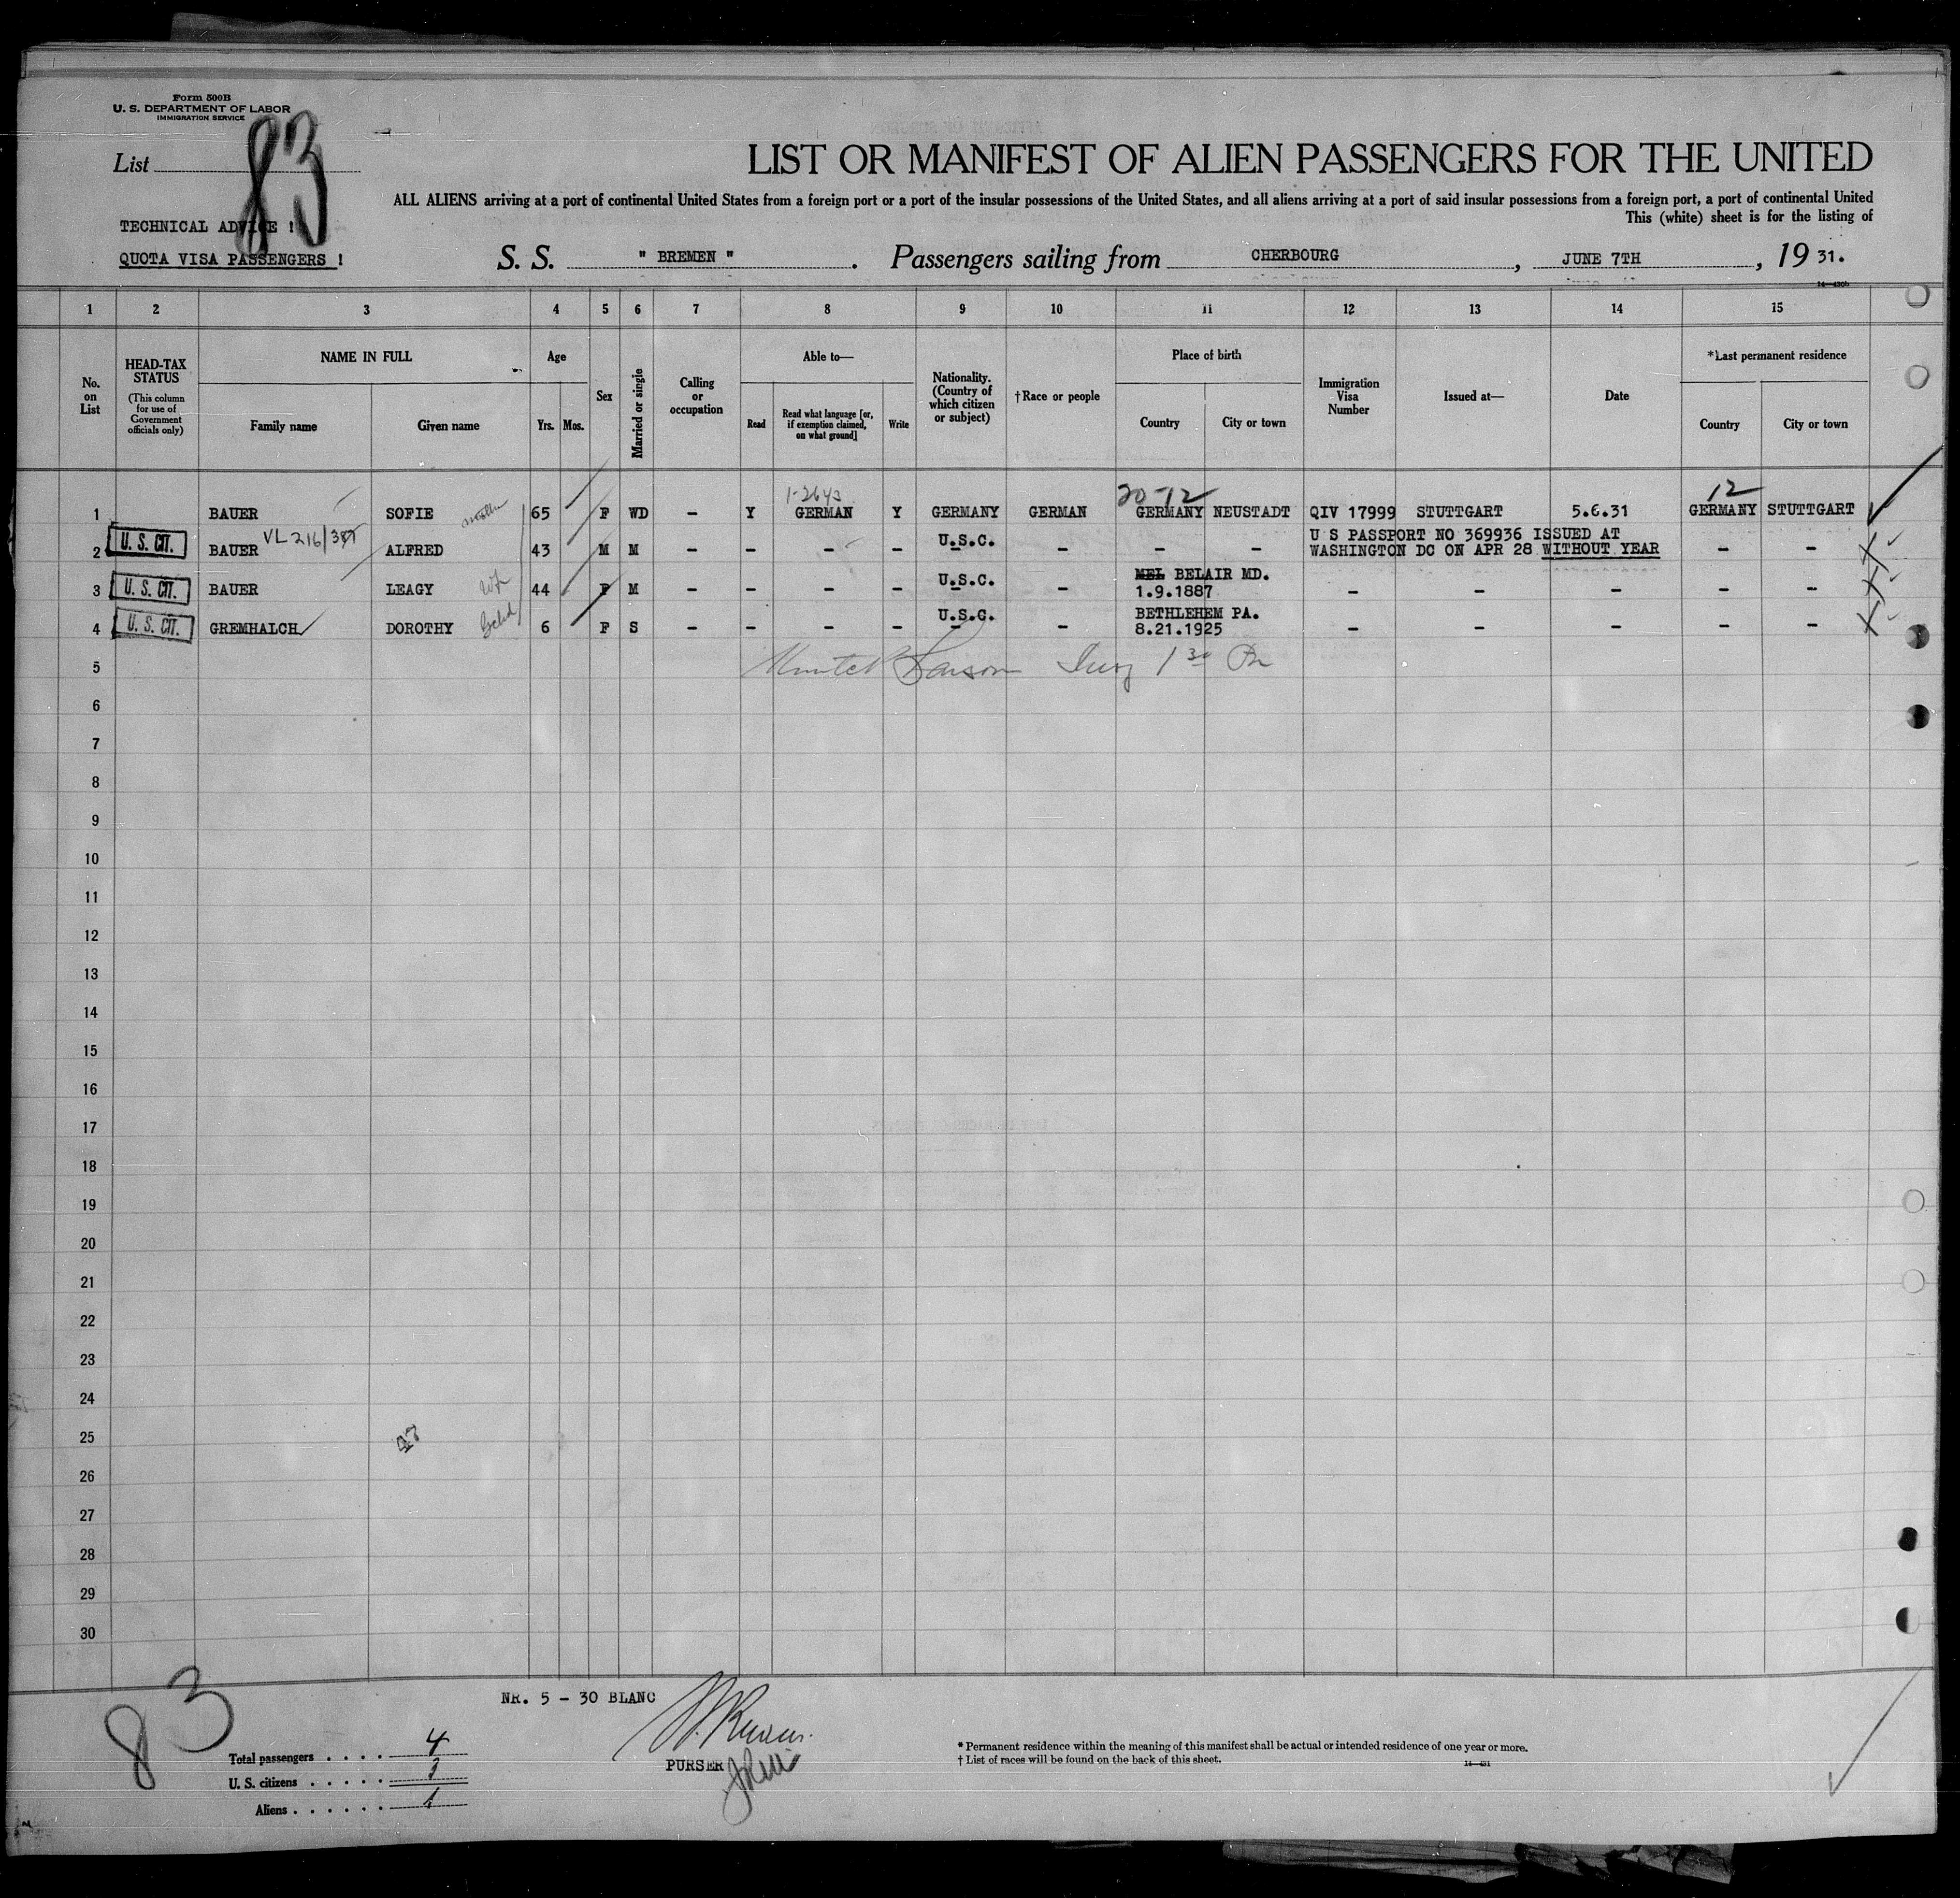 Form 500B
U. S. DEPARTMENT OF LABOR
IMMIGRATION SERVICE
List
83
TECHNICAL ADVICE !
QUOTA VISA PASSENGERS !
LIST OR MANIFEST OF ALIEN PASSENGERS FOR THE UNITED
ALL ALIENS arriving at a port of continental United States from a foreign port or a port of the insular possessions of the United States, and all aliens arriving at a port of said insular possessions from a foreign port, a port of continental United
This (white) sheet is for the listing of
S. S. " BREMEN " . Passengers sailing from CHERBOURG , JUNE 7TH , 19 31.
1 2 3 4 5 6 7 8 9 10 11 12 13 14 15
No. on List
HEAD-TAX STATUS
(This column for use of Government officials only)
NAME IN FULL
Family name Given name
Age
Yrs. Mos.
Sex
Married or single
Calling or occupation
Able to—
Read
Read what language [or, if exemption claimed, on what ground]
Write
Nationality. (Country of which citizen or subject)
†Race or people
Place of birth
Country City or town
Immigration Visa Number
Issued at—
Date
*Last permanent residence
Country City or town
1-2643 20-12 12
1 BAUER SOFIE mother 65 F WD – Y GERMAN Y GERMANY GERMAN GERMANY NEUSTADT QIV 17999 STUTTGART 5.6.31 GERMANY STUTTGART
VL 216
U.S.C. U S PASSPORT NO 369936 ISSUED AT
2 U. S. CIT. BAUER ALFRED 43 M M – – – – – – – WASHINGTON DC ON APR 28 WITHOUT YEAR – –
U.S.C. MEL BELAIR MD.
3 U. S. CIT. BAUER LEAGY 44 F M – – – – – 1.9.1887 – – – – –
U.S.C. BETHLEHEM PA.
4 U. S. CIT. GREMHALCH DOROTHY 6 F S – – – – – 8.21.1925 – – – – –
5
6
7
8
9
10
11
12
13
14
15
16
17
18
19
20
21
22
23
24
25
26
27
28
29
30
83
NR. 5 - 30 BLANC
PURSER
Total passengers . . . . 4
U. S. citizens . . . . . 3
Aliens . . . . . . 1
* Permanent residence within the meaning of this manifest shall be actual or intended residence of one year or more.
† List of races will be found on the back of this sheet.